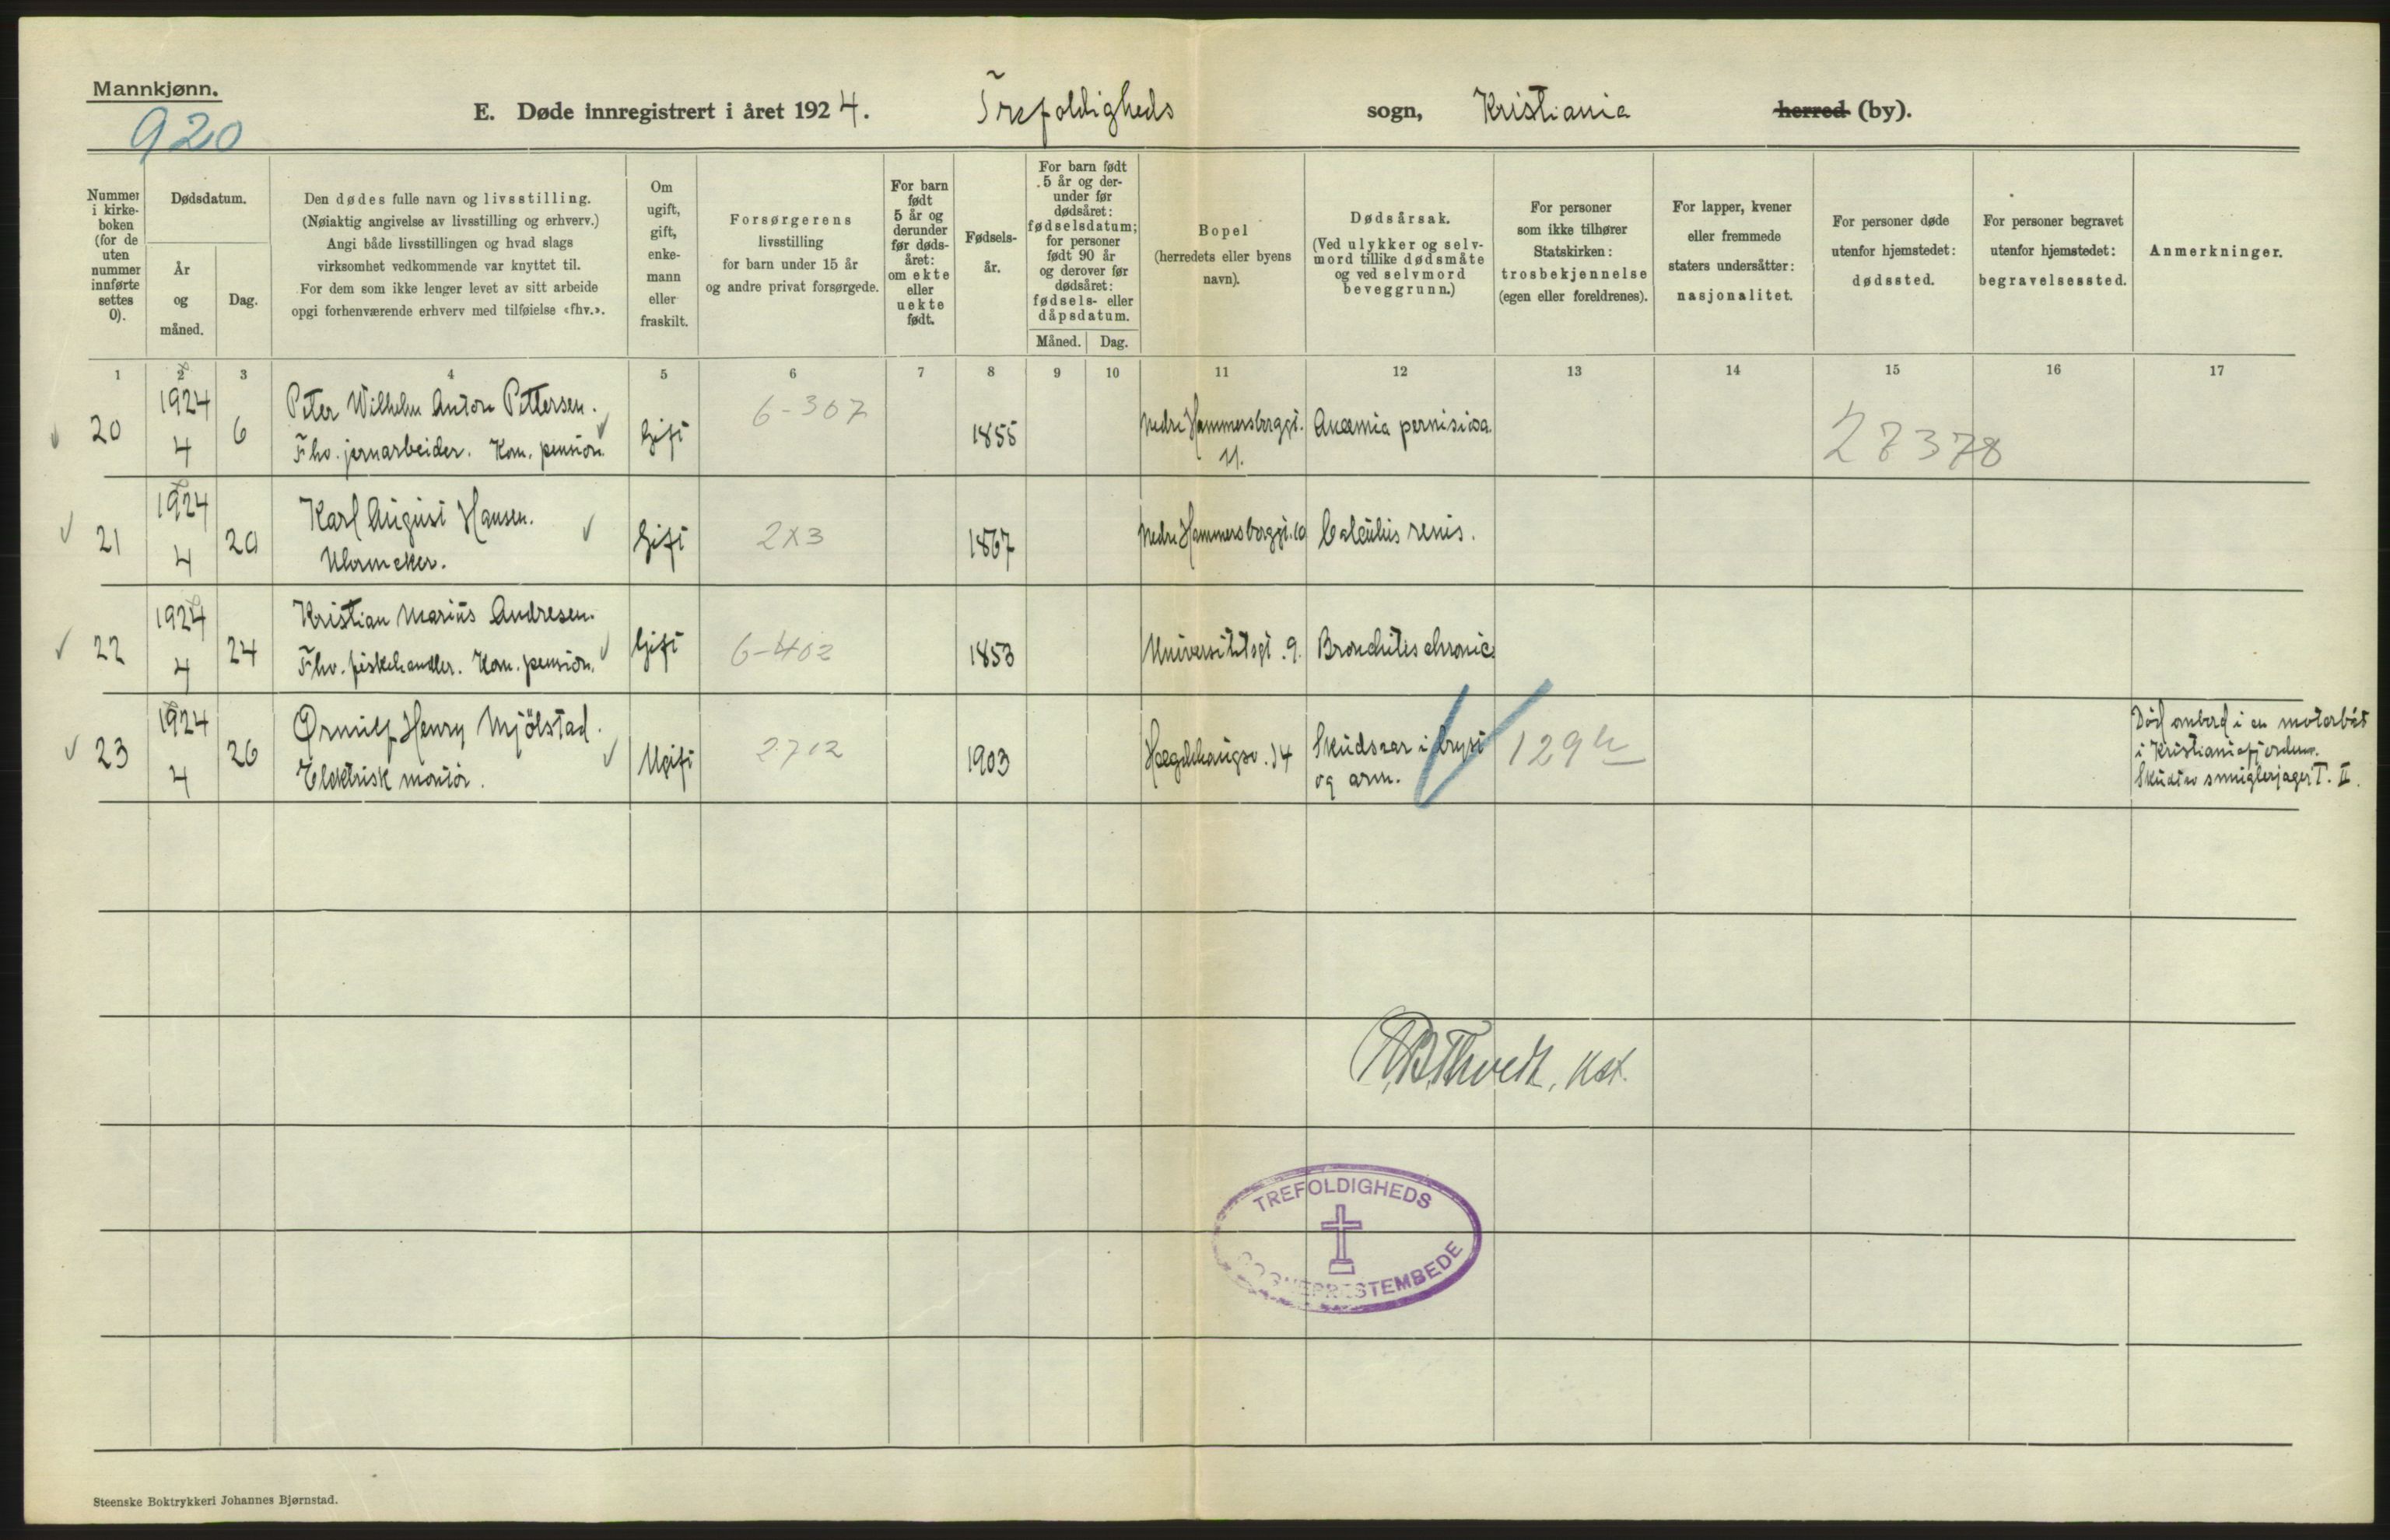 Mannkjønn.
920
E. Døde innregistrert i året 1924. Trefoldigheds sogn, Kristiania herred (by).
Nummer i kirke- boken (for de uten nummer innførte settes 0).
Dødsdatum.
År og måned.
Dag.
Den dødes fulle navn og livsstilling.
(Nøiaktig angivelse av livsstilling og erhverv.)
Angi både livsstillingen og hvad slags
virksomhet vedkommende var knyttet til.
For dem som ikke lenger levet av sitt arbeide
opgi forhenværende erhverv med tilføielse «fhv.».
Om ugift, gift, enke- mann eller fraskilt.
Forsørgerens
livsstilling
for barn under 15 år
og andre privat forsørgede.
For barn født 5 år og derunder før døds- året: om ekte eller uekte født.
Fødsels- år.
For barn født 5 år og der- under før dødsåret: fødselsdatum; for personer født 90 år og derover før dødsåret: fødsels- eller dåpsdatum.
Måned. Dag.
Bopel
(herredets eller byens
navn).
Dødsårsak.
(Ved ulykker og selv-
mord tillike dødsmåte
og ved selvmord
beveggrunn.)
For personer
som ikke tilhører
Statskirken:
trosbekjennelse
(egen eller foreldrenes).
For lapper, kvener
eller fremmede
staters undersåtter:
nasjonalitet.
For personer døde
utenfor hjemstedet:
dødssted.
For personer begravet
utenfor hjemstedet:
begravelsessted.
Anmerkninger.
1 2 3 4 5 6 7 8 9 10 11 12 13 14 15 16 17
20 1924 4 6 Peter Wilhelm Anton Pettersen. Gift 6-307 1855 Nedre Hammersborggt. 11. Anæmia pernisiosa. 27378
Fhv. jernarbeider. Kom. pension.
21 1924 4 20 Karl August Hansen. Gift 2X3 1867 Nedre Hammersborggt. 10 Calculus renis.
Uhrmaker.
22 1924 4 24 Kristian Marius Andresen. Gift 6-402 1853 Universitetsgt. 9. Bronchitis chronic
Fhv. fiskehandler. Kom. pension.
23 1924 4 26 Ørnulf Henry Mjölstad. Ugift 2712 1903 Hægdehaugsv. 14 Skudsaar i bryst
og arm. 129
Elektrisk montör.
Död ombord i en motorbåt
i Kristianiafjorden.
Skudt av smuglerjager T. II.
TREFOLDIGHEDS
SOGNEPRESTEMBEDE
Steenske Boktrykkeri Johannes Bjørnstad.